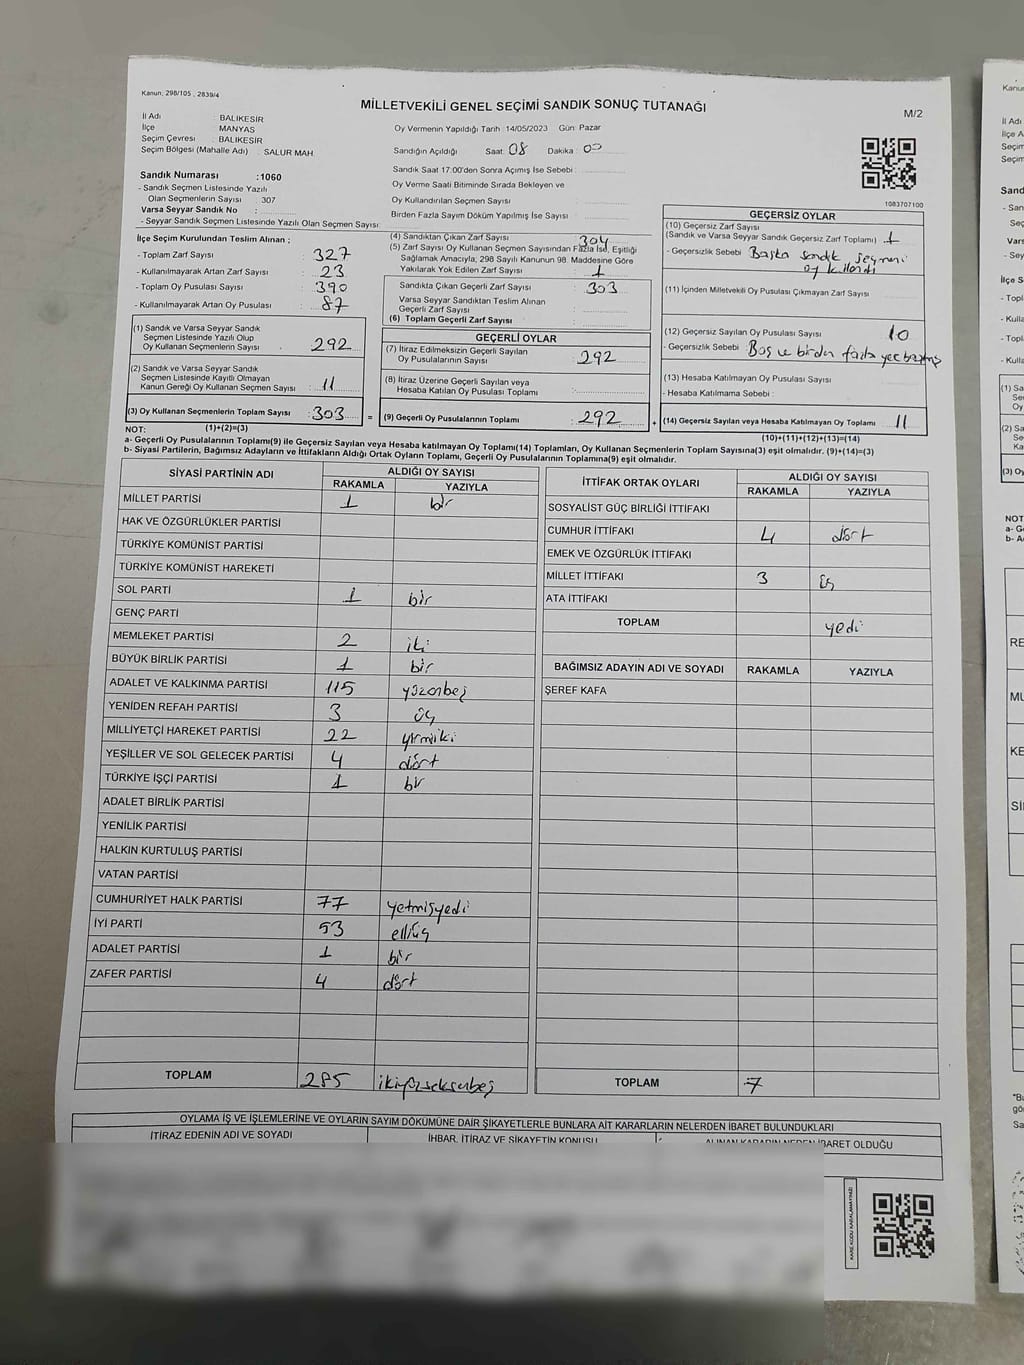 Kanun, 298/105 , 2839/4
MİLLETVEKİLİ GENEL SEÇİMİ SANDIK SONUÇ TUTANAĞI
M/2
İl Adı : BALIKESİR
İlçe : MANYAS
Seçim Çevresi : BALIKESİR
Seçim Bölgesi (Mahalle Adı) : SALUR MAH.
Oy Vermenin Yapıldığı Tarih :14/05/2023 Gün: Pazar
Sandığın Açıldığı Saat: 08 Dakika : 00
Sandık Numarası :1060
- Sandık Seçmen Listesinde Yazılı
Olan Seçmenlerin Sayısı : 307
Varsa Seyyar Sandık No :
- Seyyar Sandık Seçmen Listesinde Yazılı Olan Seçmen Sayısı:
Sandık Saat 17.00'den Sonra Açımış İse Sebebi :
Oy Verme Saati Bitiminde Sırada Bekleyen ve
Oy Kullandırılan Seçmen Sayısı :
Birden Fazla Sayım Döküm Yapılmış İse Sayısı :
1083707100
İlçe Seçim Kurulundan Teslim Alınan ;
- Toplam Zarf Sayısı : 327
- Kullanılmayarak Artan Zarf Sayısı : 23
- Toplam Oy Pusulası Sayısı : 390
- Kullanılmayarak Artan Oy Pusulası : 87
(1) Sandık ve Varsa Seyyar Sandık
Seçmen Listesinde Yazılı Olup
Oy Kullanan Seçmenlerin Sayısı : 292
(2) Sandık ve Varsa Seyyar Sandık
Seçmen Listesinde Kayıtlı Olmayan
Kanun Gereği Oy Kullanan Seçmen Sayısı : 11
(3) Oy Kullanan Seçmenlerin Toplam Sayısı : 303 =
(1)+(2)=(3)
(4) Sandıktan Çıkan Zarf Sayısı : 304
(5) Zarf Sayısı Oy Kullanan Seçmen Sayısından Fazla İse, Eşitliği
Sağlamak Amacıyla; 298 Sayılı Kanunun 98. Maddesine Göre
Yakılarak Yok Edilen Zarf Sayısı : 1
Sandıkta Çıkan Geçerli Zarf Sayısı : 303
Varsa Seyyar Sandıktan Teslim Alınan
Geçerli Zarf Sayısı :
(6) Toplam Geçerli Zarf Sayısı :
GEÇERLİ OYLAR
(7) İtiraz Edilmeksizin Geçerli Sayılan
Oy Pusulalarının Sayısı : 292
(8) İtiraz Üzerine Geçerli Sayılan veya
Hesaba Katılan Oy Pusulası Toplamı :
(9) Geçerli Oy Pusulalarının Toplamı : 292 +
GEÇERSİZ OYLAR
(10) Geçersiz Zarf Sayısı
(Sandık ve Varsa Seyyar Sandık Geçersiz Zarf Toplamı) : 1
- Geçersizlik Sebebi : Başka sandık seçmeni
(11) İçinden Milletvekili Oy Pusulası Çıkmayan Zarf Sayısı
(12) Geçersiz Sayılan Oy Pusulası Sayısı : 10
- Geçersizlik Sebebi : Boş ve birden fazla
(13) Hesaba Katılmayan Oy Pusulası Sayısı
- Hesaba Katılmama Sebebi :
(14) Geçersiz Sayılan veya Hesaba Katılmayan Oy Toplamı : 11
(10)+(11)+(12)+(13)=(14)
NOT:
a- Geçerli Oy Pusulalarının Toplamı(9) ile Geçersiz Sayılan veya Hesaba katılmayan Oy Toplamı(14) Toplamları, Oy Kullanan Seçmenlerin Toplam Sayısına(3) eşit olmalıdır. (9)+(14)=(3)
b- Siyasi Partilerin, Bağımsız Adayların ve İttifakların Aldığı Ortak Oyların Toplamı, Geçerli Oy Pusulalarının Toplamına(9) eşit olmalıdır.
SİYASİ PARTİNİN ADI ALDIĞI OY SAYISI
RAKAMLA YAZIYLA
MİLLET PARTİSİ 1 bir
HAK VE ÖZGÜRLÜKLER PARTİSİ
TÜRKİYE KOMÜNİST PARTİSİ
TÜRKİYE KOMÜNİST HAREKETİ
SOL PARTİ 1 bir
GENÇ PARTİ
MEMLEKET PARTİSİ 2 iki
BÜYÜK BİRLİK PARTİSİ 1 bir
ADALET VE KALKINMA PARTİSİ 115 yüzonbeş
YENİDEN REFAH PARTİSİ 3 üç
MİLLİYETÇİ HAREKET PARTİSİ 22 yirmiiki
YEŞİLLER VE SOL GELECEK PARTİSİ 4 dört
TÜRKİYE İŞÇİ PARTİSİ 1 bir
ADALET BİRLİK PARTİSİ
YENİLİK PARTİSİ
HALKIN KURTULUŞ PARTİSİ
VATAN PARTİSİ
CUMHURİYET HALK PARTİSİ 77 yetmişyedi
İYİ PARTİ 53 elliüç
ADALET PARTİSİ 1 bir
ZAFER PARTİSİ 4 dört
TOPLAM 285 ikiyüzseksenbeş
İTTİFAK ORTAK OYLARI ALDIĞI OY SAYISI
RAKAMLA YAZIYLA
SOSYALİST GÜÇ BİRLİĞİ İTTİFAKI
CUMHUR İTTİFAKI 4 dört
EMEK VE ÖZGÜRLÜK İTTİFAKI
MİLLET İTTİFAKI 3 üç
ATA İTTİFAKI
TOPLAM yedi
BAĞIMSIZ ADAYIN ADI VE SOYADI RAKAMLA YAZIYLA
ŞEREF KAFA
TOPLAM 7
OYLAMA İŞ VE İŞLEMLERİNE VE OYLARIN SAYIM DÖKÜMÜNE DAİR ŞİKAYETLERLE BUNLARA AİT KARARLARIN NELERDEN İBARET BULUNDUKLARI
İTİRAZ EDENİN ADI VE SOYADI İHBAR, İTİRAZ VE ŞİKAYETİN KONUSU ALINAN KARARIN NEDEN İBARET OLDUĞU